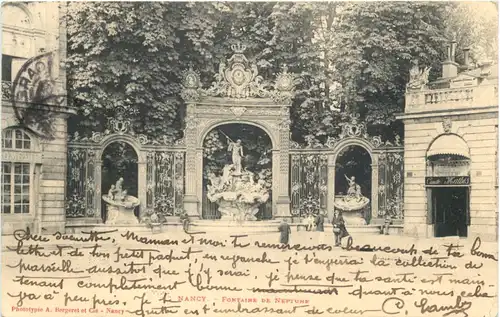 Chère Jeannette, Maman et moi te remercions beaucoup de ta bonne lettre
et de ton petit paquet, en revanche je t'enverrai la collection de
pareille aussitôt que j'y serai. je pense que ta santé est main-
tenant complètement bonne maintenant, quant à nous cela
va à peu près. Je t
quitte en t'embrassant de tout coeur
NANCY - FONTAINE DE NEPTUNE
Phototypie A. Bergeret et Cie - Nancy